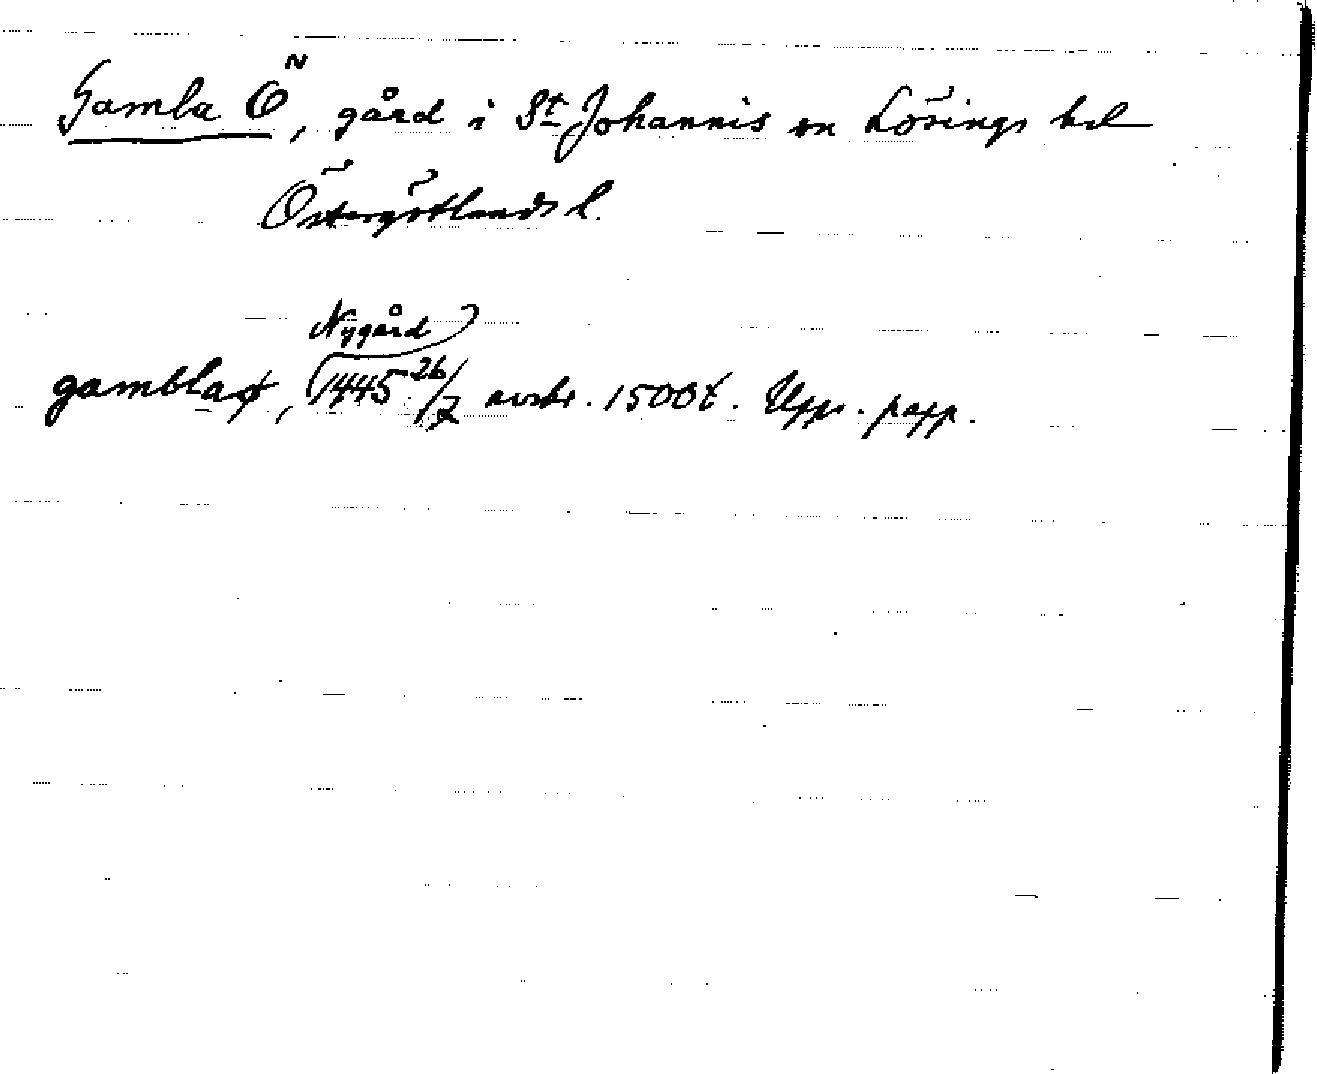 Gamla Ö, gård i St Johannis sn Lösings hd
Östergötlands l.
Nygård
gamblaø, (1445 26/7 avskr. 1500t. Upps. papp.